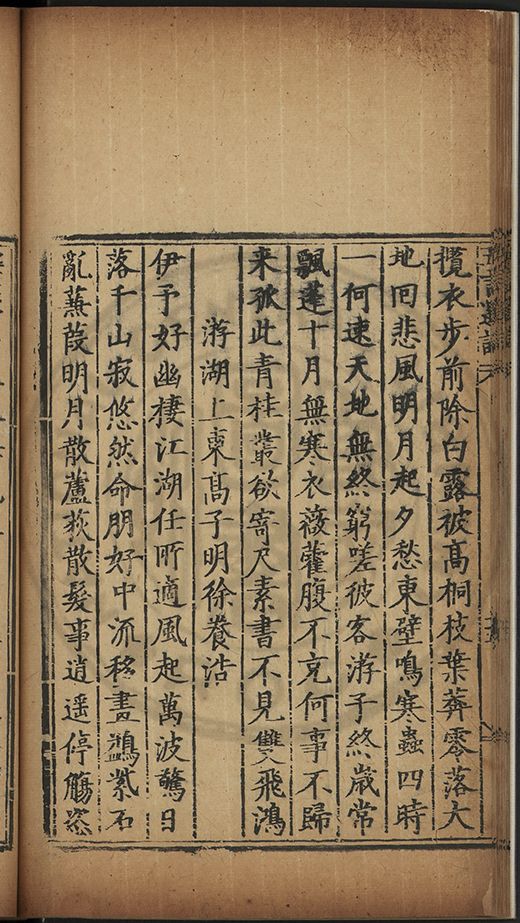 攬衣步前除白露被髙桐枝葉葬零落大
地回悲風明月起夕愁東壁鳴寒蟲四時
一何速天地無終窮嗟彼客游子終歲常
飄蓬十月無寒衣薇藿腹不充何事不歸
来孤此青桂叢欲寄尺素書不見雙飛鴻
游湖上柬髙子明徐養浩
伊予好幽棲江湖任所適風起萬波驚日
落千山寂悠然命朋好中流移畫鷁縈石
亂蕪葭明月散蘆荻散髮事逍遥停觴恣